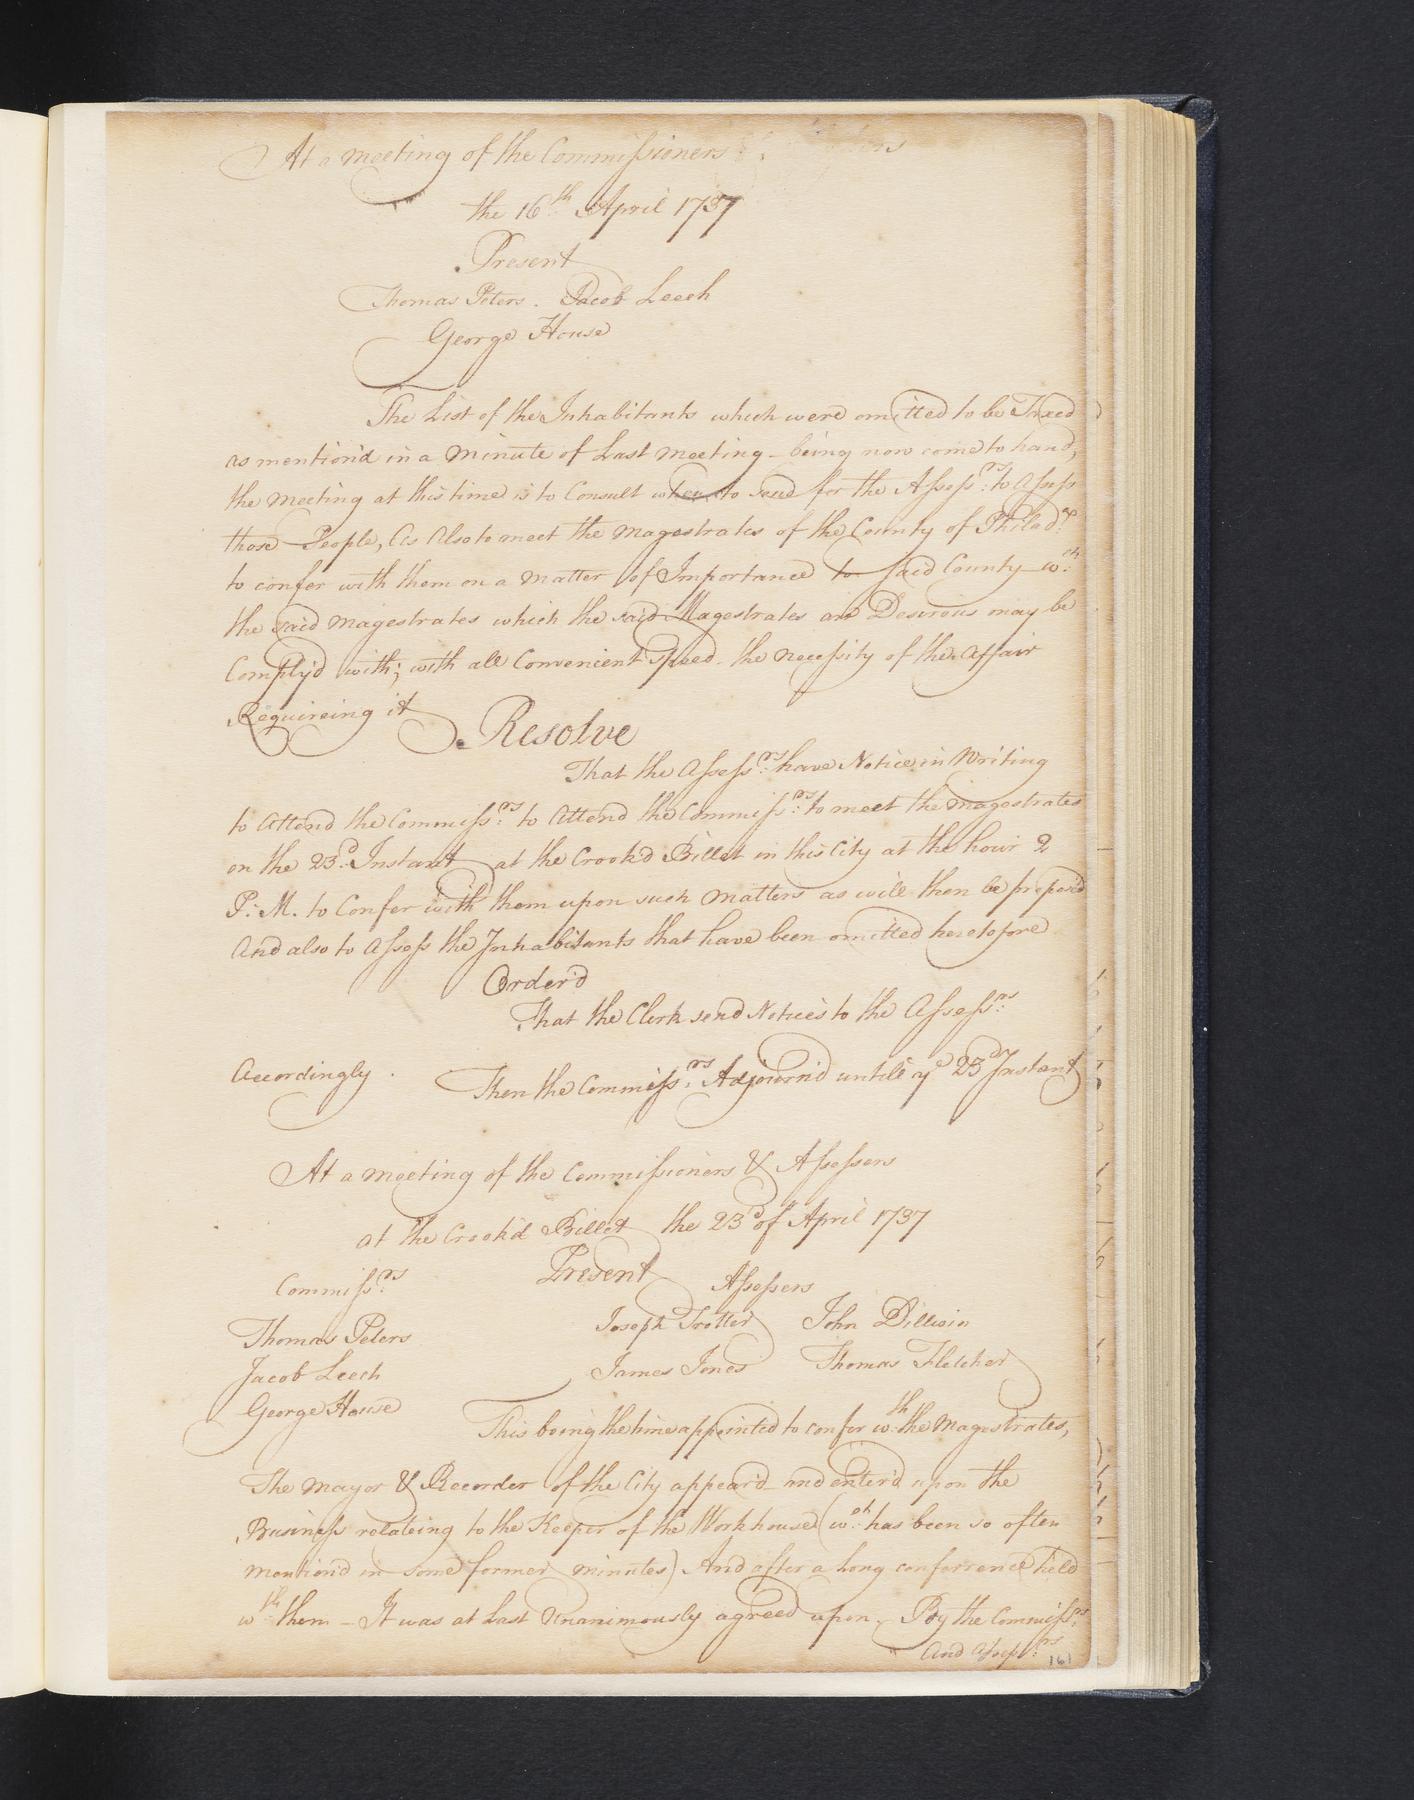 At a meeting of the Commissioners
the 16th April 1737
Present
Thomas Peters. Jacob Leech
George House
The List of the Inhabitants which were omitted to be Taxed
as mention'd in a minute of Last meeting - being now come to hand,
the meeting at this time is to Consult when to send for the Assess:rs to Assess
those People, As Also to meet the magestrates of the County of Philad:a
to confer with them on a matter of Importance to said County w:ch
the said magestrates which the said Magestrates are Desirous may be
Comply'd with; with all Convenient Speed. the necessity of the Affair
Requireing it
Resolve
That the Assess:rs have Notice in Writing
to Attend the Commiss:rs to Attend the Commiss:rs to meet the magestrates
on the 23:d Instant at the Crook'd Billet in this City at the hour 2
P:M. to Confer with them upon such matters as will then be propos'd
And also to Assess the Inhabitants that have been omitted heretofore
Order'd
That the Clerk send Notices to the Assess:rs
Accordingly.
Then the Commiss:rs Adjourn'd untill ye 23d Instant
At a meeting of the Commissioners & Assessers
at the Crook'd Billet the 23d of April 1737
Present
Commiss:rs Assessers
Thomas Peters Joseph Trotter John Dillwin
Jacob Leech James Jones Thomas Fletcher
George House
This being the time appointed to confer w:th the Magestrates,
The mayor & Recorder of the City appear'd and enter'd upon the
Business relateing to the Keeper of the Workhouse (w:ch has been so often
mention'd in some former minutes) And after a Long conferrence held
w:th them - It was at Last Unanimously agreed upon. By the Commiss:rs
And Assess:rs
161